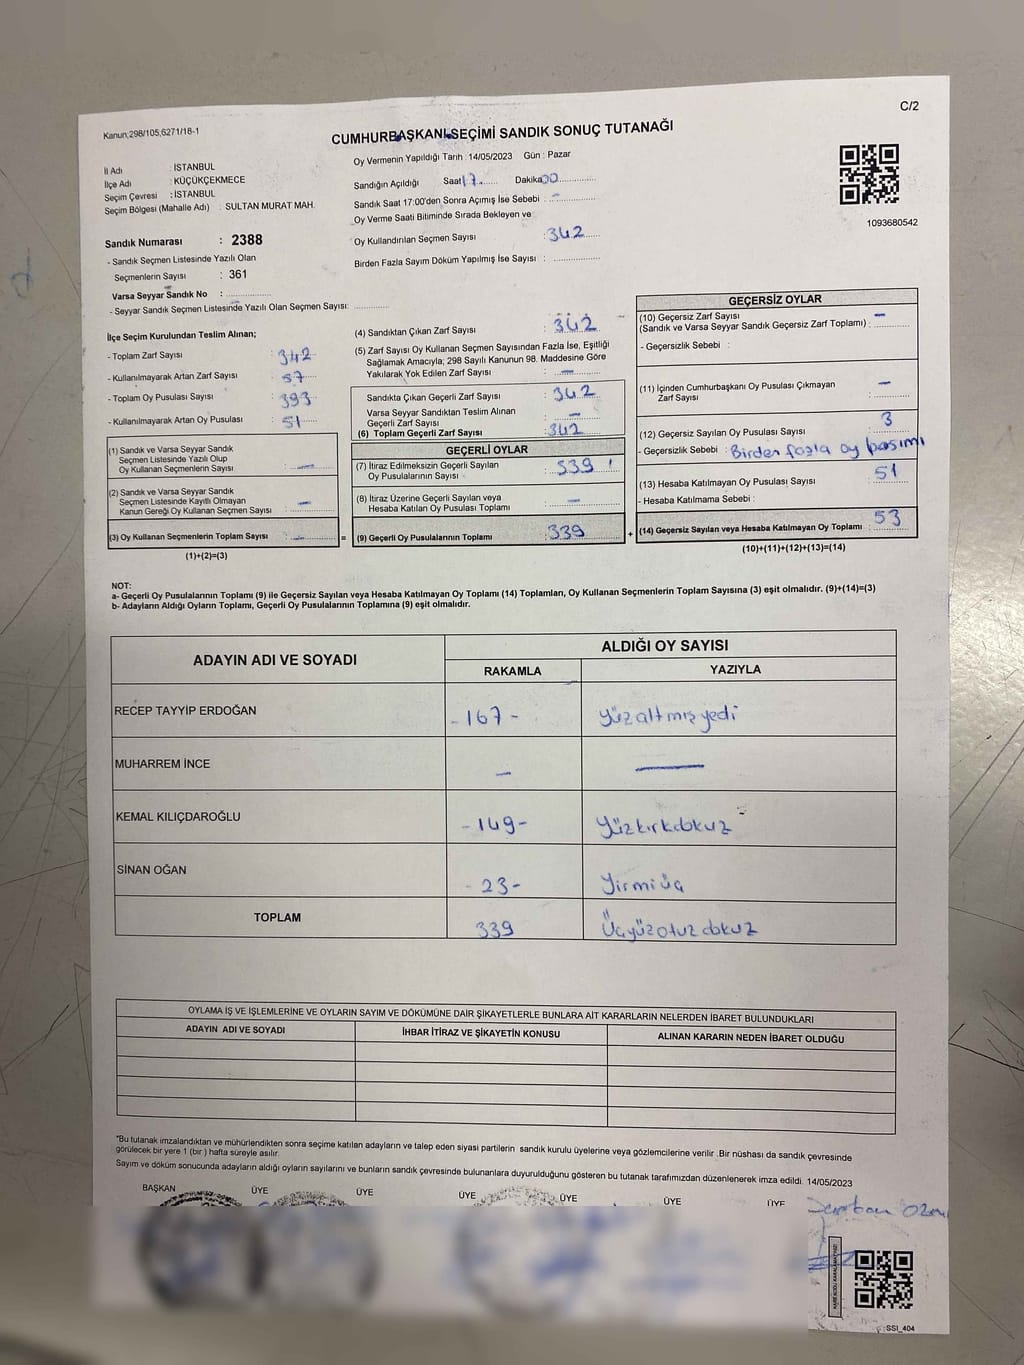 C/2
Kanun;298/105,6271/18-1
CUMHURBAŞKANI SEÇİMİ SANDIK SONUÇ TUTANAĞI
İl Adı : İSTANBUL
İlçe Adı : KÜÇÜKÇEKMECE
Seçim Çevresi : İSTANBUL
Seçim Bölgesi (Mahalle Adı) : SULTAN MURAT MAH.
Sandık Numarası : 2388
- Sandık Seçmen Listesinde Yazılı Olan
Seçmenlerin Sayısı : 361
Varsa Seyyar Sandık No :
- Seyyar Sandık Seçmen Listesinde Yazılı Olan Seçmen Sayısı:
Oy Vermenin Yapıldığı Tarih : 14/05/2023 Gün : Pazar
Sandığın Açıldığı Saat 17 Dakika 00
Sandık Saat 17:00'den Sonra Açımış İse Sebebi : -
Oy Verme Saati Bitiminde Sırada Bekleyen ve
Oy Kullandırılan Seçmen Sayısı : 342
Birden Fazla Sayım Döküm Yapılmış İse Sayısı :
1093680542
İlçe Seçim Kurulundan Teslim Alınan;
- Toplam Zarf Sayısı : 342
- Kullanılmayarak Artan Zarf Sayısı : 57
- Toplam Oy Pusulası Sayısı : 393
- Kullanılmayarak Artan Oy Pusulası : 51
(1) Sandık ve Varsa Seyyar Sandık
Seçmen Listesinde Yazılı Olup
Oy Kullanan Seçmenlerin Sayısı : -
(2) Sandık ve Varsa Seyyar Sandık
Seçmen Listesinde Kayıtlı Olmayan
Kanun Gereği Oy Kullanan Seçmen Sayısı : -
(3) Oy Kullanan Seçmenlerin Toplam Sayısı : - =
(1)+(2)=(3)
(4) Sandıktan Çıkan Zarf Sayısı : 342
(5) Zarf Sayısı Oy Kullanan Seçmen Sayısından Fazla İse, Eşitliği
Sağlamak Amacıyla; 298 Sayılı Kanunun 98. Maddesine Göre
Yakılarak Yok Edilen Zarf Sayısı : -
Sandıkta Çıkan Geçerli Zarf Sayısı : 342
Varsa Seyyar Sandıktan Teslim Alınan
Geçerli Zarf Sayısı : -
(6) Toplam Geçerli Zarf Sayısı : 342
GEÇERLİ OYLAR
(7) İtiraz Edilmeksizin Geçerli Sayılan
Oy Pusulalarının Sayısı : 339
(8) İtiraz Üzerine Geçerli Sayılan veya
Hesaba Katılan Oy Pusulası Toplamı : -
(9) Geçerli Oy Pusulalarının Toplamı : 339 +
GEÇERSİZ OYLAR
(10) Geçersiz Zarf Sayısı -
(Sandık ve Varsa Seyyar Sandık Geçersiz Zarf Toplamı) :
- Geçersizlik Sebebi :
(11) İçinden Cumhurbaşkanı Oy Pusulası Çıkmayan
Zarf Sayısı : -
(12) Geçersiz Sayılan Oy Pusulası Sayısı : 3
- Geçersizlik Sebebi : Birden fazla oy basımı
(13) Hesaba Katılmayan Oy Pusulası Sayısı : 51
- Hesaba Katılmama Sebebi :
(14) Geçersiz Sayılan veya Hesaba Katılmayan Oy Toplamı : 53
(10)+(11)+(12)+(13)=(14)
NOT:
a- Geçerli Oy Pusulalarının Toplamı (9) ile Geçersiz Sayılan veya Hesaba Katılmayan Oy Toplamı (14) Toplamları, Oy Kullanan Seçmenlerin Toplam Sayısına (3) eşit olmalıdır. (9)+(14)=(3)
b- Adayların Aldığı Oyların Toplamı, Geçerli Oy Pusulalarının Toplamına (9) eşit olmalıdır.
ADAYIN ADI VE SOYADI
ALDIĞI OY SAYISI
RAKAMLA YAZIYLA
RECEP TAYYİP ERDOĞAN - 167 - Yüzaltmışyedi
MUHARREM İNCE - —
KEMAL KILIÇDAROĞLU - 149 - Yüzkırkdokuz
SİNAN OĞAN - 23 - Yirmiüç
TOPLAM 339 Üçyüzotuzdokuz
OYLAMA İŞ VE İŞLEMLERİNE VE OYLARIN SAYIM VE DÖKÜMÜNE DAİR ŞİKAYETLERLE BUNLARA AİT KARARLARIN NELERDEN İBARET BULUNDUKLARI
ADAYIN ADI VE SOYADI İHBAR İTİRAZ VE ŞİKAYETİN KONUSU ALINAN KARARIN NEDEN İBARET OLDUĞU
*Bu tutanak imzalandıktan ve mühürlendikten sonra seçime katılan adayların ve talep eden siyasi partilerin sandık kurulu üyelerine veya gözlemcilerine verilir. Bir nüshası da sandık çevresinde
görülecek bir yere 1 (bir) hafta süreyle asılır.
Sayım ve döküm sonucunda adayların aldığı oyların sayılarını ve bunların sandık çevresinde bulunanlara duyurulduğunu gösteren bu tutanak tarafımızdan düzenlenerek imza edildi. 14/05/2023
BAŞKAN ÜYE ÜYE ÜYE ÜYE ÜYE ÜYE
SSI_404